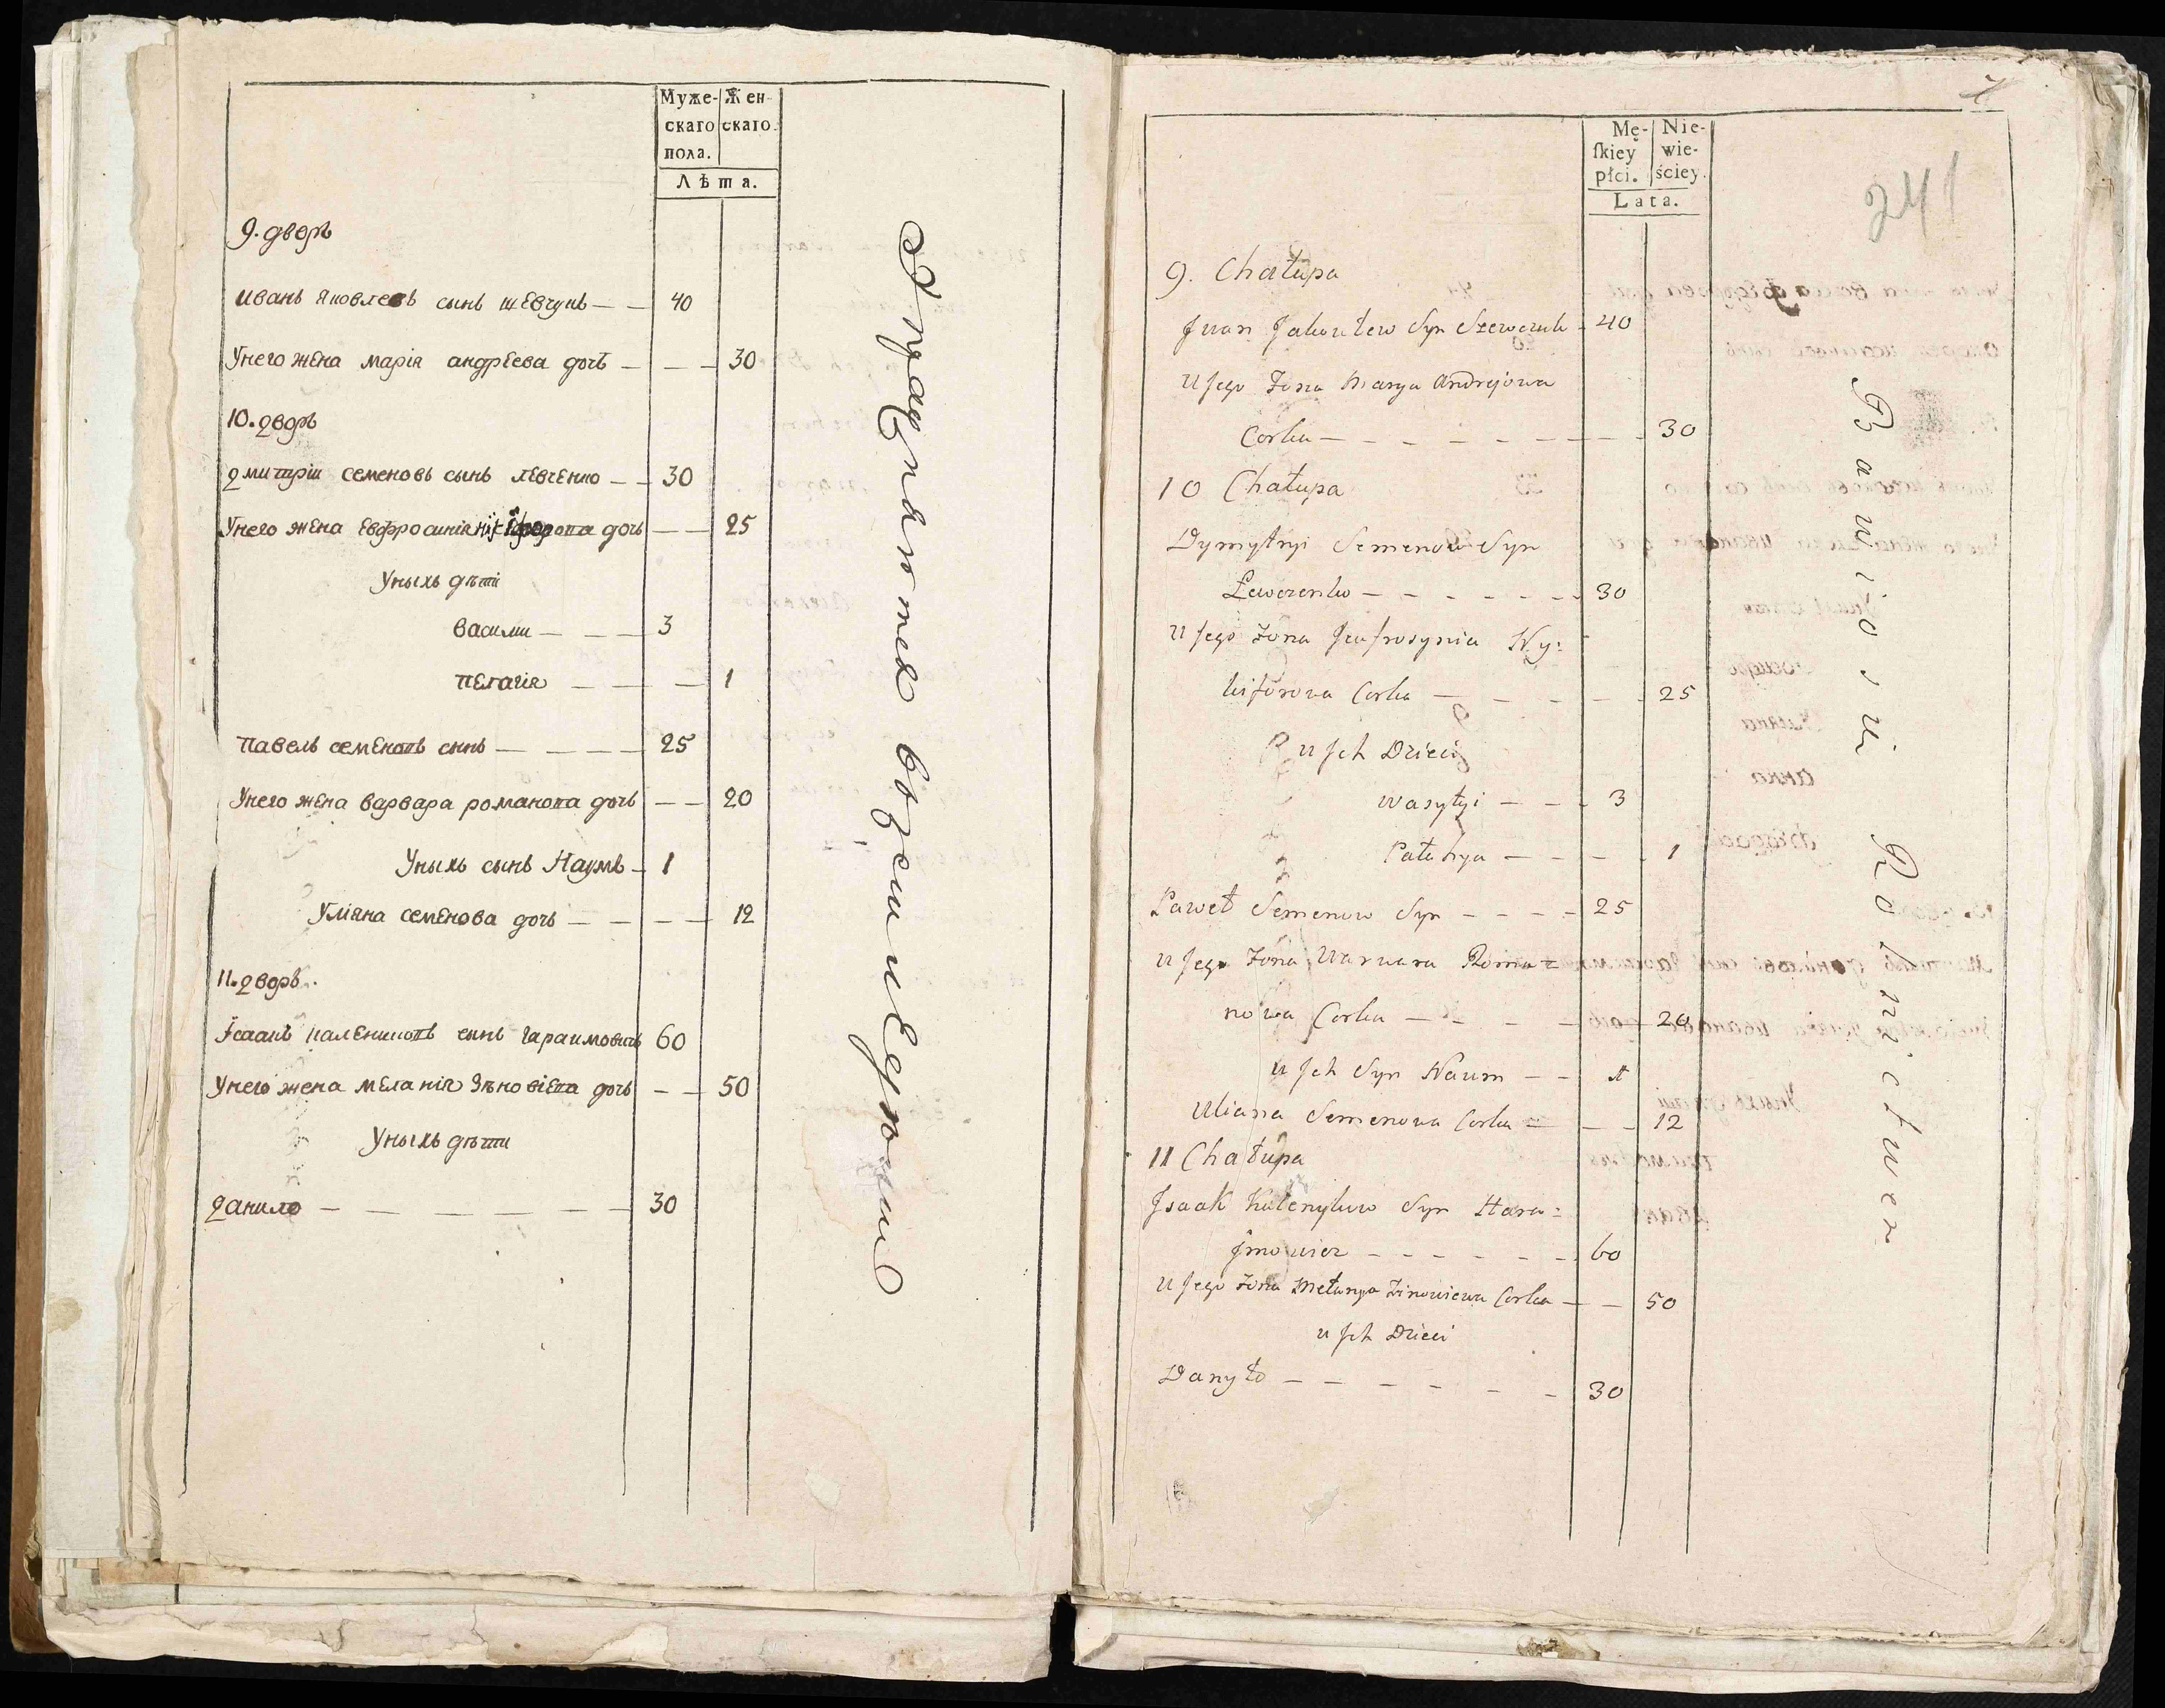 Муже- Жен-
скаго скаго.
пола.
Лѣта.
9. дворъ
иванъ яковлевъ сынъ шевчукъ — — 40
Унего жена марія андрѣева дочь — — — 30
10. дворъ
дмитріи семеновъ сынъ левченко — — 30
Унего жена Евфросинія дочь — — 25
Уныхъ дѣти
василии — — — 3
пелагія — — — 1
павелъ семеновъ сынъ — — — — 25
Унего жена варвара романова дочь — — 20
Уныхъ сынъ Наумъ — 1
Уліяна семенова дочь — — — — 12
11. дворъ.
Ісаакъ каленниковъ сынъ гараимовичъ 60
Унего жена меланія зѣновіева дочь — — 50
Уныхъ дѣти
данило — — — — — — 30
Упражняются въ земледѣліи
7
241
Mę- Nie-
ſkiey wie-
płci. ściey.
Lata.
9. Chałupa
Jwan Jakowlew Syn Szewczuk - 40
U Jego Żona Marya Andrejowa
Corka — — — — — — — 30
10 Chałupa
Dymytryi Semenow Syn
Lewczenko — — — — — — 30
U Jego Żona Jeufrosynia Ny:
kiforowa Corka — — — — — 25
u Jch Dzieci
Wasylyi — — — 3
Pałahya — — — — 1
Paweł Semenow Syn — — — — 25
U Jego Żona Warwara Roma=
nowa Corka — — — — 20
u Jch Syn Naum — — 1
Uliana Semenowa Corka — — — 12
11 Chałupa
Jsaak Kalenykow Syn Hara:
Jmowicz — — — — — — 60
U Jego Żona Mełanya Zinowiewa Corka — — 50
u Jch Dzieci
Danyło — — — — — — 30
Bawią się Rolnictwem